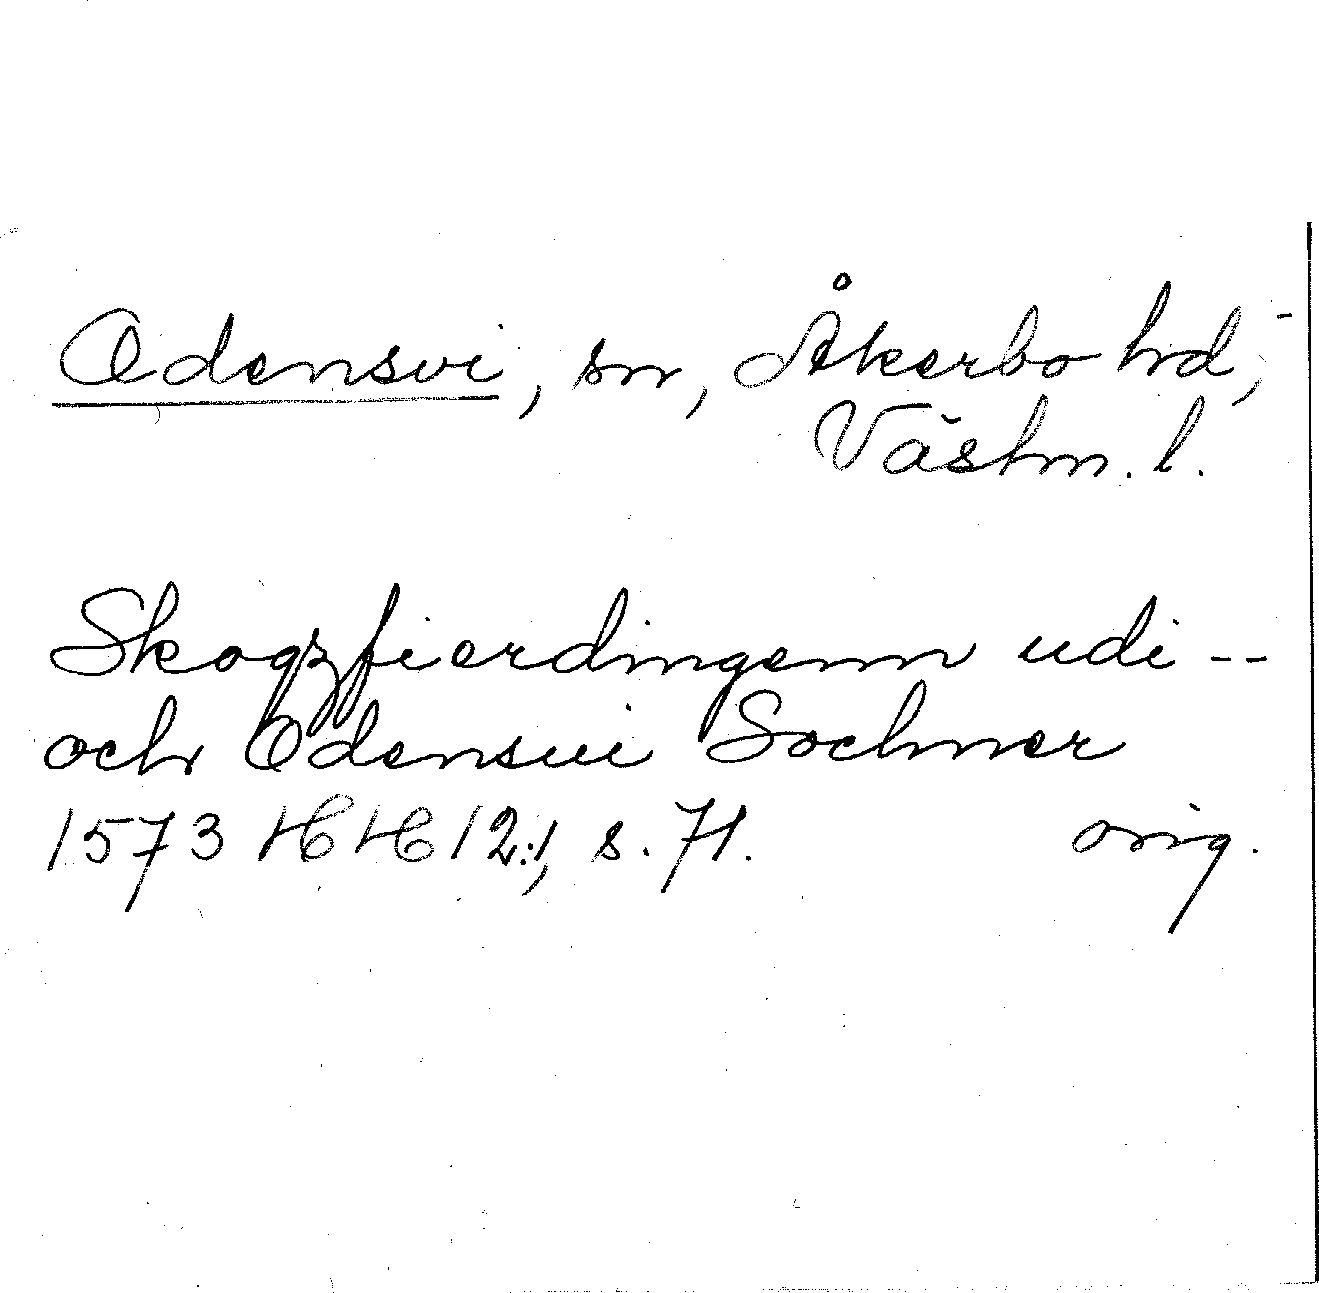 Odensvi, sn, Åkerbo hd,
Västm. l.
Skogzfierdingenn udi --
och Odensuii Sochner
1573 HH 12:1, s. 71. orig.